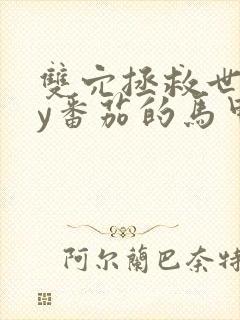 雙穴拯救世
y番茄的馬甲
阿尔蘭巴奈特